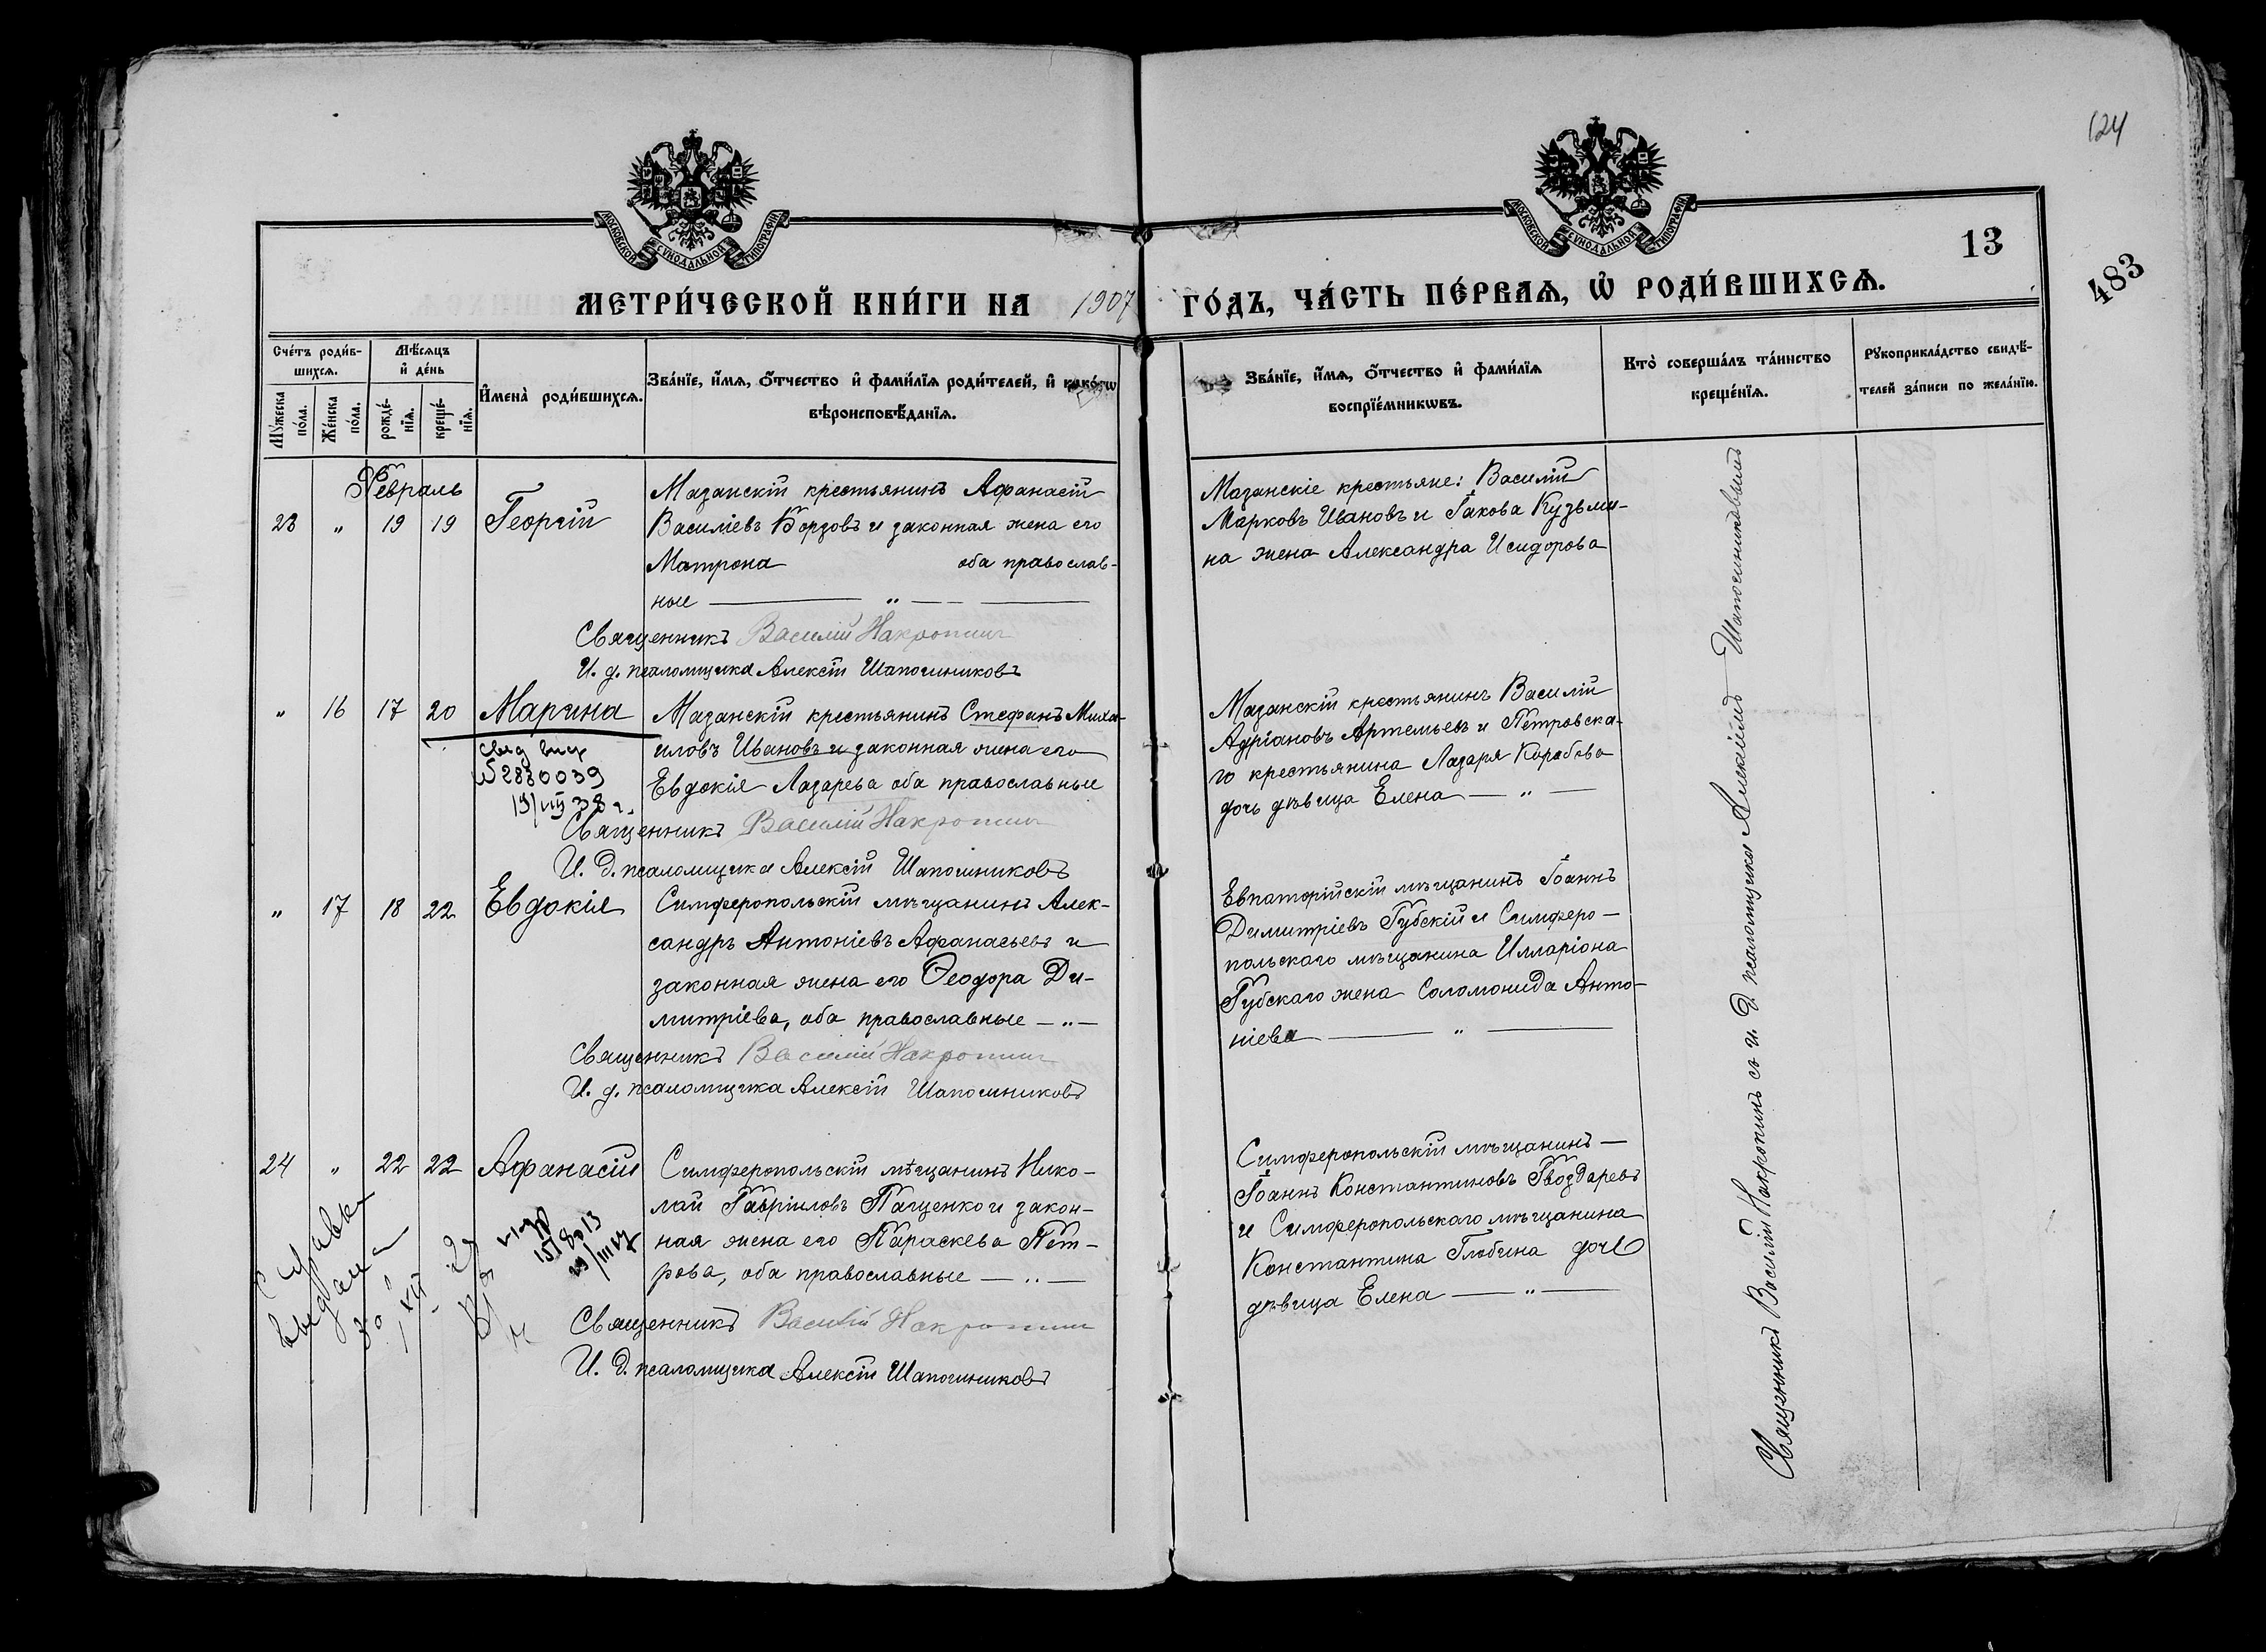 124
МОСКОВСКОЙ СѴНОДАЛЬНОЙ ТИПОГРАФІИ
МОСКОВСКОЙ СѴНОДАЛЬНОЙ ТИПОГРАФІИ
13
483
МЕТРИ́ЧЕСКОЙ КНИ́ГИ НА 1907 ГО́ДЪ, ЧА́СТЬ ПЕ́РВАѦ, Ѡ҆ РОДИ́ВШИХСѦ.
Сче́тъ роди́в-
шихсѧ.
Мѣ́сѧцъ
и҆ де́нь
Мꙋ́жеска
по́ла.
Же́нска
по́ла.
рожде́-
нїѧ.
креще́-
нїѧ.
И҆мена̀ роди́вшихсѧ.
Зва́нїе, и҆́мѧ, ѻ҆́тчество и҆ фами́лїѧ роди́телей, и҆ како́гѡ
вѣроисповѣ́данїѧ.
Зва́нїе, и҆́мѧ, ѻ҆́тчество и҆ фами́лїѧ
воспрїе́мникѡвъ.
Кто̀ соверша́лъ та́инство
креще́нїѧ.
Рꙋкоприкла́дство свидѣ́-
телей за́писи по жела́нїю.
Февраль
23 „ 19 19 Георгій
Мазанскій крестьянинъ Афанасій
Василіевъ Борзовъ и законная жена его
Матрона оба православ-
ные — „ — —
Священникъ Василій Накропин
И. д. псаломщика Алексій Шапошниковъ
Мазанскіе крестьяне: Василій
Марковъ Ивановъ и Іакова Кузьми-
на жена Александра Исидорова
„ 16 17 20 Марина
свид выд
№ 2880039
19/VIII 38 г.
Мазанскій крестьянинъ Стефанъ Миха-
иловъ Ивановъ и законная жена его
Евдокія Лазарева оба православные
Священникъ Василій Накропин
И. д. псаломщика Алексій Шапошниковъ
Мазанскій крестьянинъ Василій
Адріановъ Артемьевъ и Петровска-
го крестьянина Лазаря Коробова
дочь дѣвица Елена — „ —
„ 17 18 22 Евдокія
Симферопольскій мѣщанинъ Алек-
сандръ Антоніевъ Афанасьевъ и
законная жена его Ѳеодора Ди-
митріева, оба православные — „ —
Священникъ Василій Накропин
И. д. псаломщика Алексій Шапошниковъ
Евпаторійскій мѣщанинъ Іоаннъ
Димитріевъ Губскій и Симферо-
польскаго мѣщанина Илларіона
Губскаго жена Соломонида Анто-
ніева — „ —
24 „ 22 22 Афанасій
Симферопольскій мѣщанинъ Нико-
лай Гавріиловъ Пащенко и закон-
ная жена его Параскева Пет-
рова, оба православные — „ —
Священникъ Василій Накропин
И. д. псаломщика Алексій Шапошниковъ
Симферопольскій мѣщанинъ —
Іоаннъ Константиновъ Гвоздаревъ
и Симферопольскаго мѣщанина
Константина Глобина дочь
дѣвица Елена — „ —
Справка
выдана
Священникъ Василій Накропинъ съ и. д. псаломщика Алексіемъ Шапошниковымъ